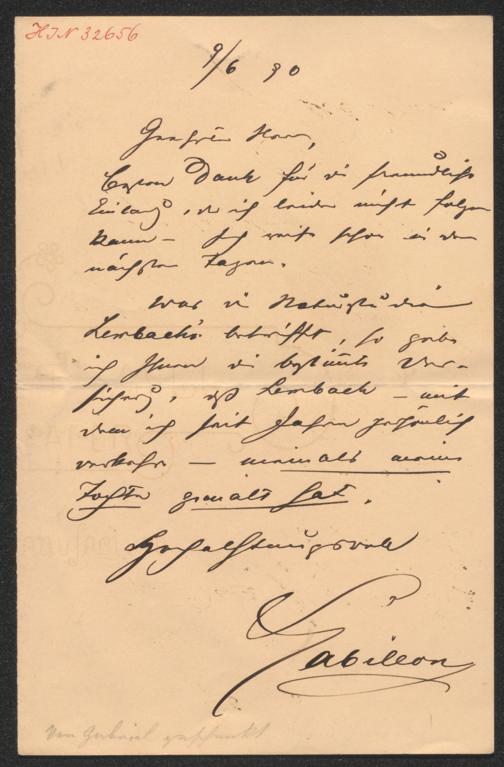 HIN 32656
9/6 90
Geehrter Herr,
Besten Dank für die freundliche
Einladg, der ich leider nicht folgen
kann – Ich reise schon in den
nächsten Tagen.
Was die Naturstudie
Lenbach's betrifft, so gebe
ich Ihnen die bestimmte Ver-
sicherg, daß Lenbach – mit
dem ich seit Jahren persönlich
verkehre – niemals meine
Tochter gemalt hat.
Hochachtungsvoll
Gabillon
Von Gabriel geschenkt